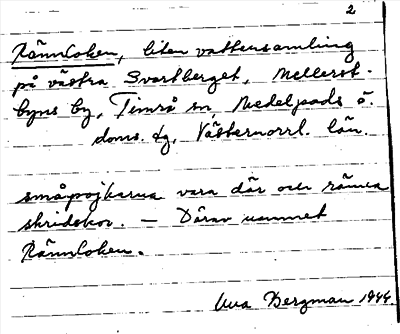 2
Rännloken, liten vattensamling
på västra Svartberget, Mellerst-
byns by, Timrå sn, Medelpads ö.
doms. dg, Västernorrl. län.
småpojkarna vara där och ränna
skridskor. — Därav namnet
Rännloken.
Bergman 1944.